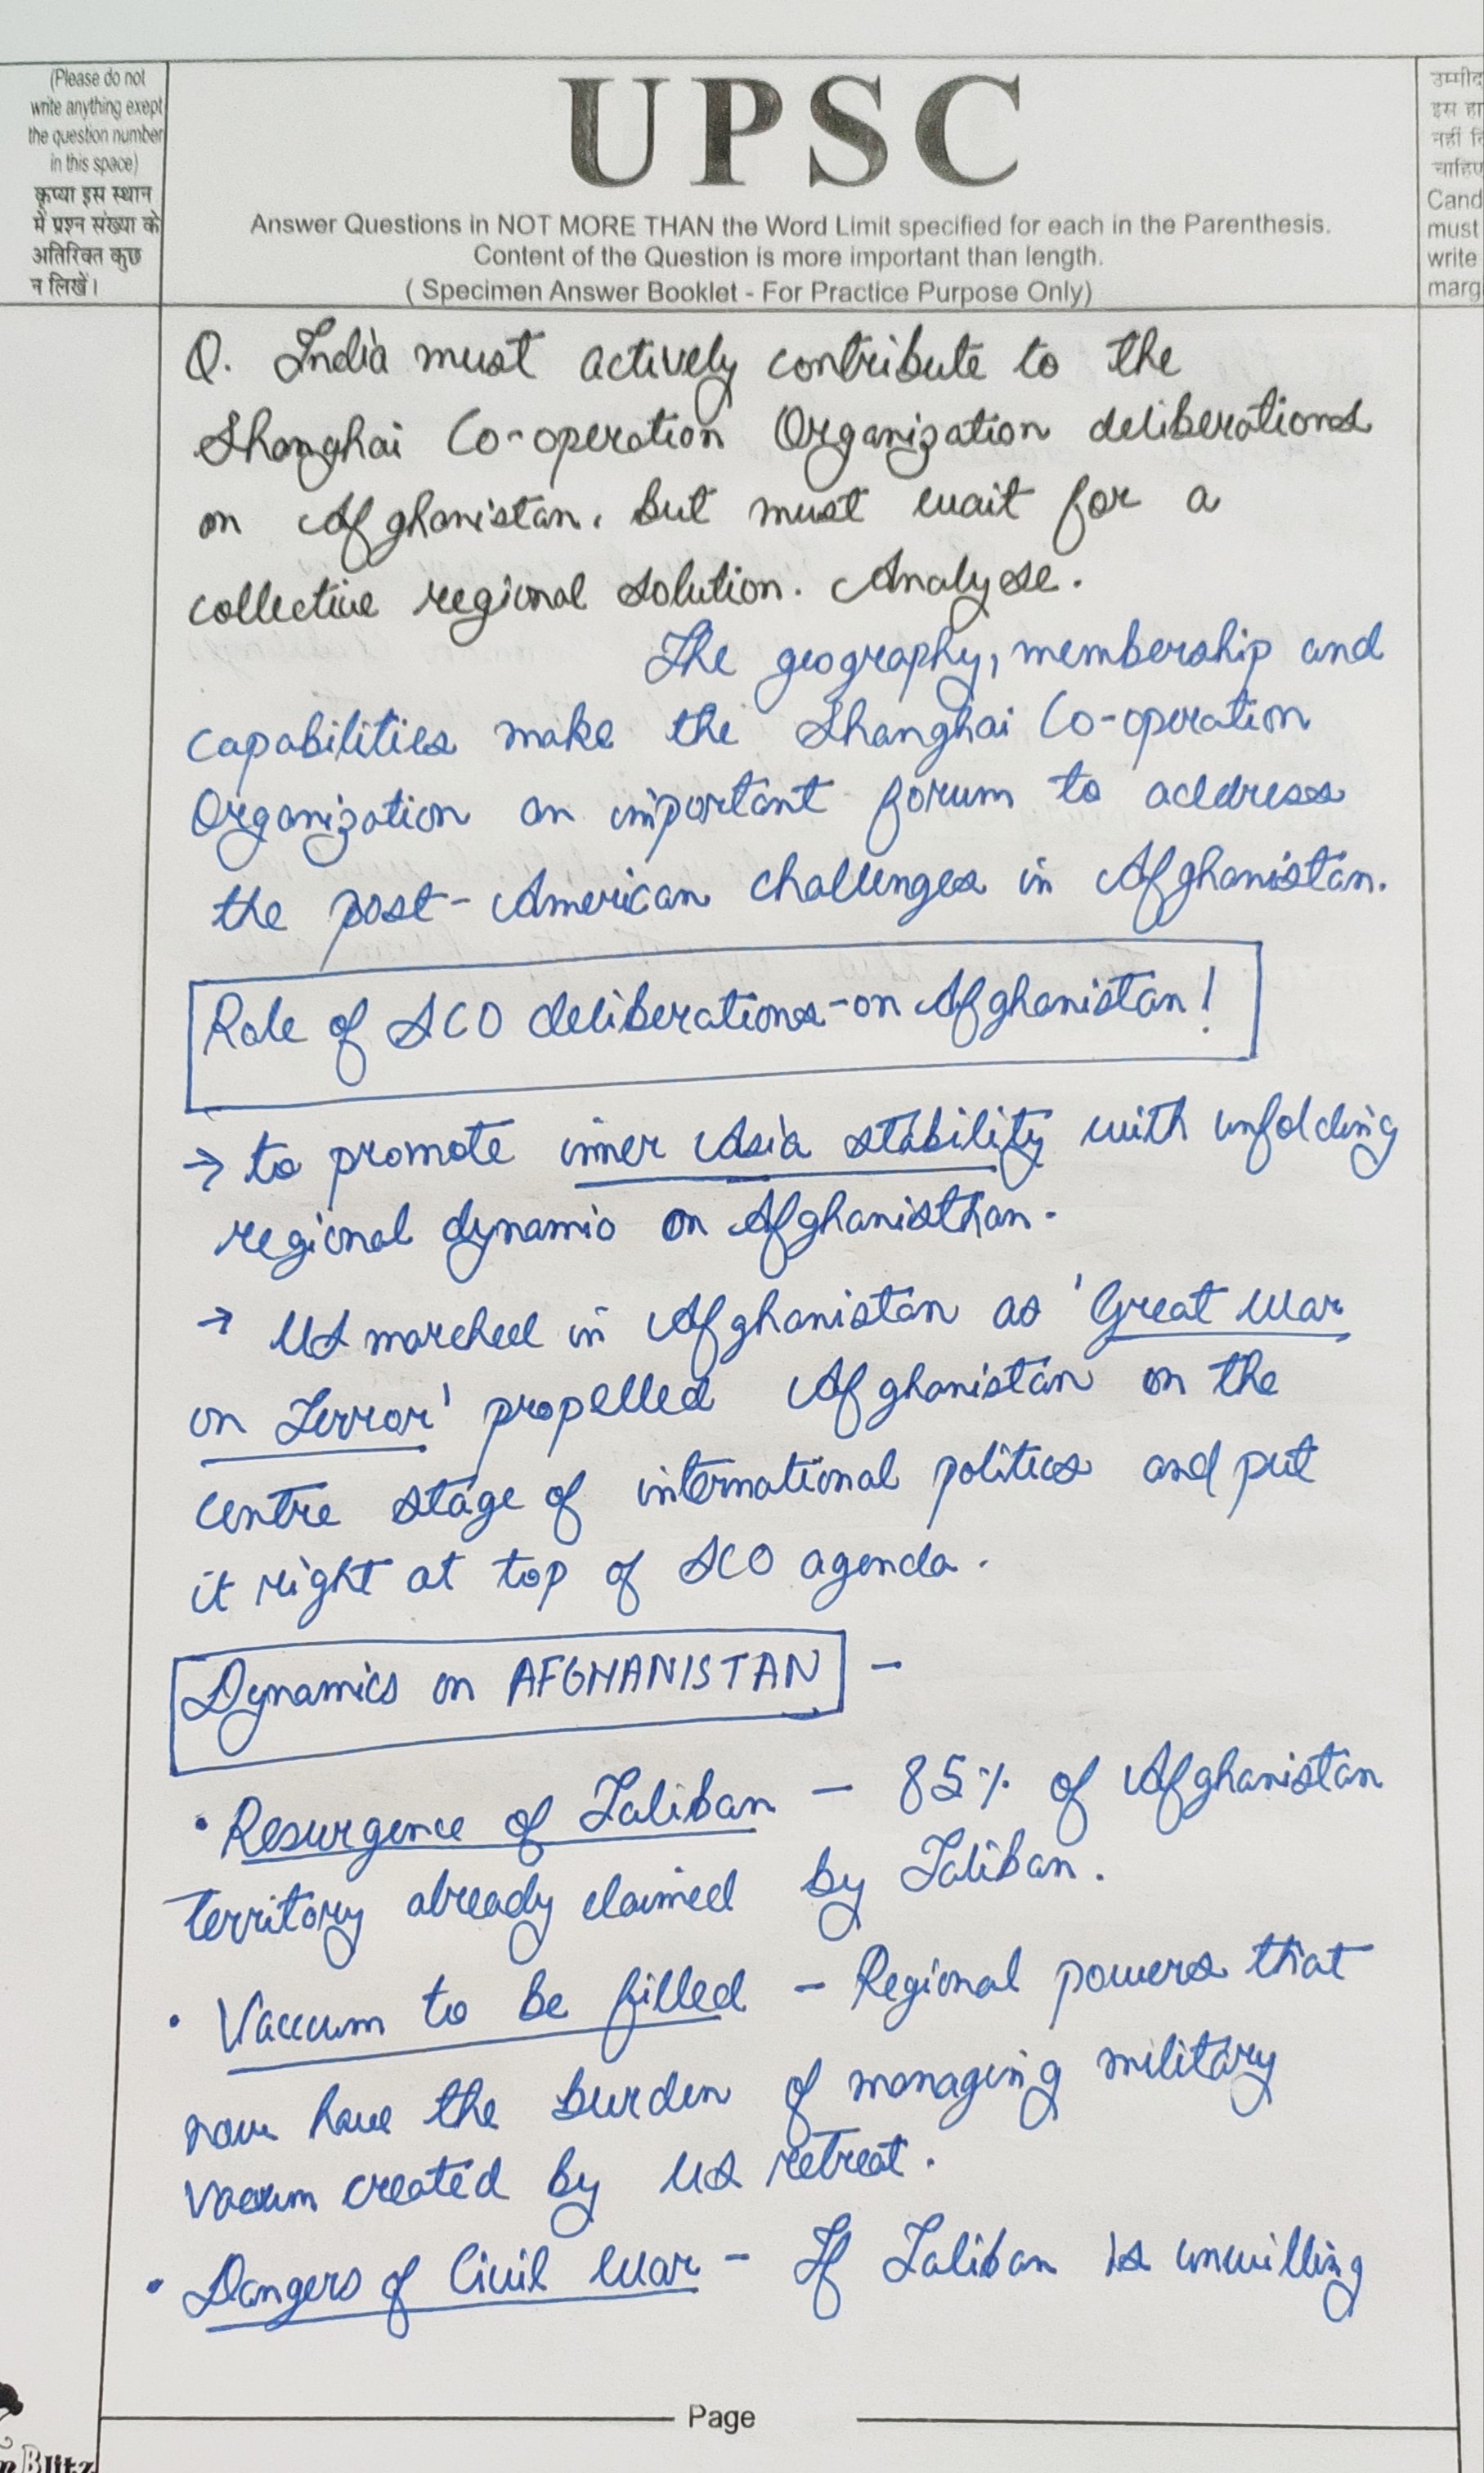 (Please do not
write anything exept
the question number
in this space)
कृप्या इस स्थान
में प्रश्न संख्या के
अतिरिक्त कुछ
न लिखें।
UPSC
Answer Questions in NOT MORE THAN the Word Limit specified for each in the Parenthesis.
Content of the Question is more important than length.
( Specimen Answer Booklet - For Practice Purpose Only)
उम्मीद
इस हा
नहीं
चाहिए
Cand
must
write
marg
Q. India must actively contribute to the
Shanghai Co-operation Organization deliberations
on Afghanistan. but must wait for a
collective regional solution. Analyse.
The geography, membership and
capabilities make the Shanghai Co-operation
Organization an important forum to address
the post-American challenges in Afghanistan.
Role of SCO deliberations-on Afghanistan!
→ to promote inner Asia stability with unfolding
regional dynamic on Afghanisthan.
→ US marched in Afghanistan as 'Great War
on Terror' propelled Afghanistan on the
centre stage of international politics and put
it right at top of SCO agenda.
Dynamics on AFGHANISTAN -
• Resurgence of Taliban - 85% of Afghanistan
territory already claimed by Taliban.
• Vaccum to be filled - Regional powers that
now have the burden of managing military
created by US retreat.
• Dangers of Civil War - If Taliban is unwilling
Page
Blitz